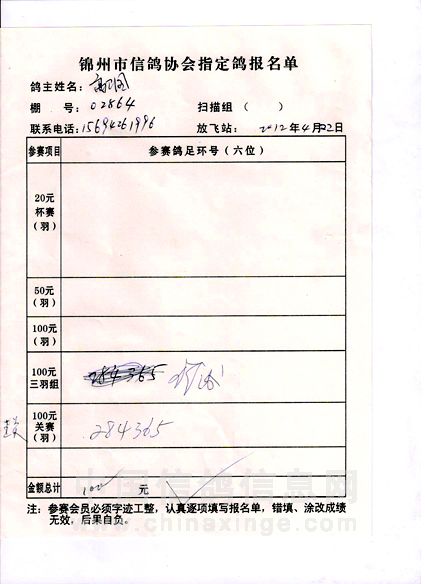 锦州市信鸽协会指定鸽报名单
鸽主姓名：
棚 号：02864 扫描组（ ）
联系电话：15694261996 放飞站：2012年4月22日
参赛项目 参赛鸽足环号（六位）
20元
杯赛
（羽）
50元
（羽）
100元
（羽）
100元
三羽组
284365
100元
关赛
（羽）
284365
金额总计 100 元
注：参赛会员必须字迹工整，认真逐项填写报名单，错填、涂改成绩
无效，后果自负。
中国信鸽信息网
www.chinaxinge.com